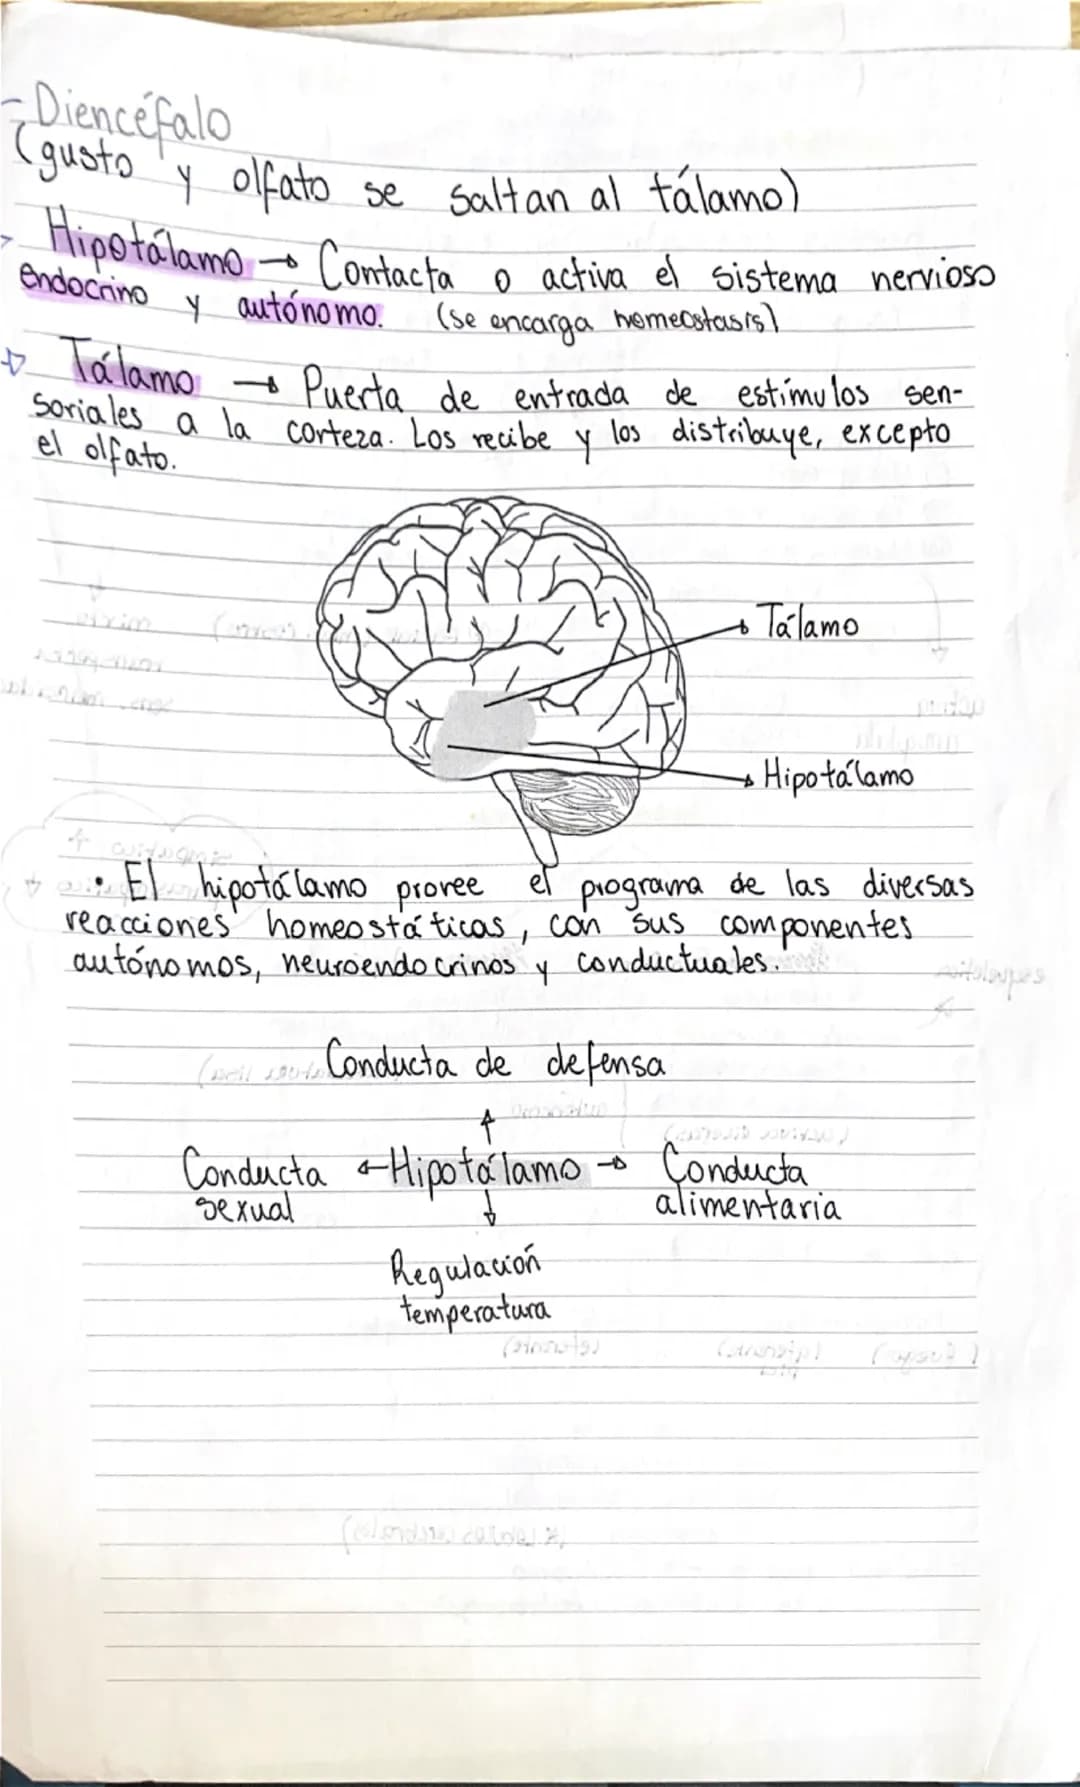 - Diencéfalo
(gusto y olfato se saltan al tálamo)
Hipotálamo → Contacta o activa el sistema nervioso
endocrino y autónomo. (se encarga homeostasis)
Tálamo → Puerta de entrada de estímulos sen-
soriales a la corteza. Los recibe y los distribuye, excepto
el olfato.
Tálamo
Hipotálamo
• El hipotálamo provee el programa de las diversas
reacciones homeostáticas, con sus componentes
autónomos, neuroendocrinos y conductuales.
Conducta de defensa
↑
Conducta ← Hipotálamo → Conducta
sexual ↓ alimentaria
Regulación
temperatura